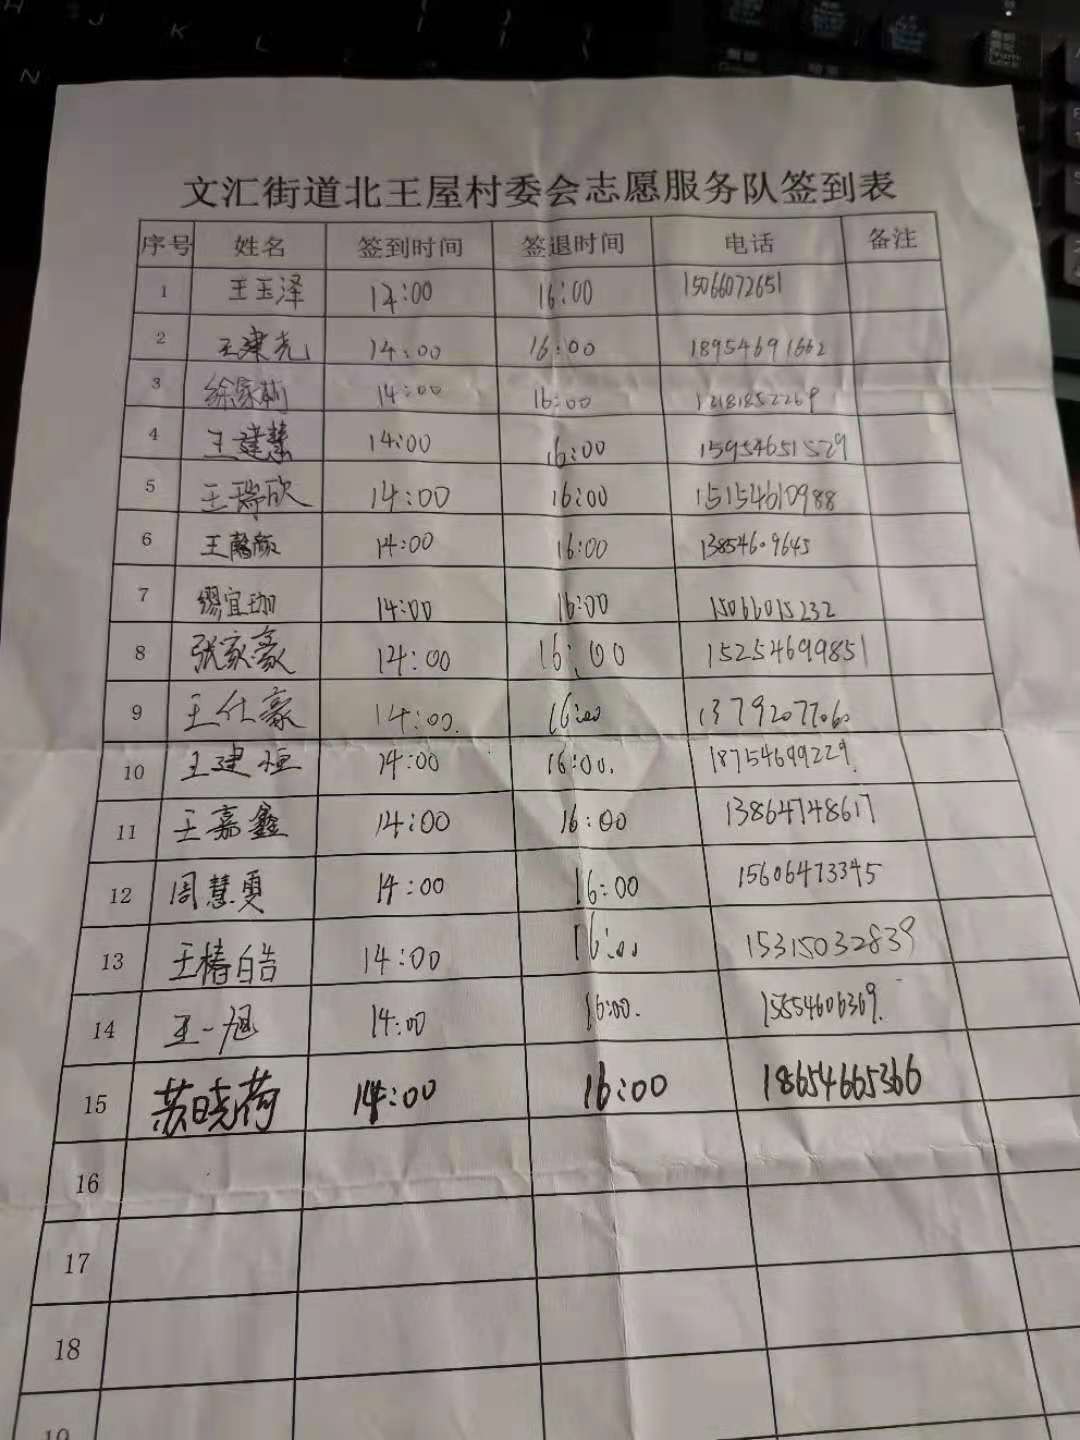 文汇街道北王屋村委会志愿服务队签到表
序号 姓名 签到时间 签退时间 电话 备注
1 王玉泽 14:00 16:00 15066072651
2 王建尧 14:00 16:00 18954691662
3 徐家莉 14:00 16:00
4 王建慧 14:00 16:00 15954651529
5 王瑞欣 14:00 16:00 15154610988
6 王馨 14:00 16:00 13854609645
7 缪宜珈 14:00 16:00 15066015232
8 张家豪 14:00 16:00 15254699851
9 王仕豪 14:00. 16:00 13792077060
10 王建恒 14:00 16:00. 18754699229.
11 王嘉鑫 14:00 16:00 13864748617
12 周慧雯 14:00 16:00 15606473345
13 王椿皓 14:00 16:00 15315032839
14 王一旭 14:00 16:00. 15854606369.
15 苏晓荷 14:00 16:00 18654665366
16
17
18
19